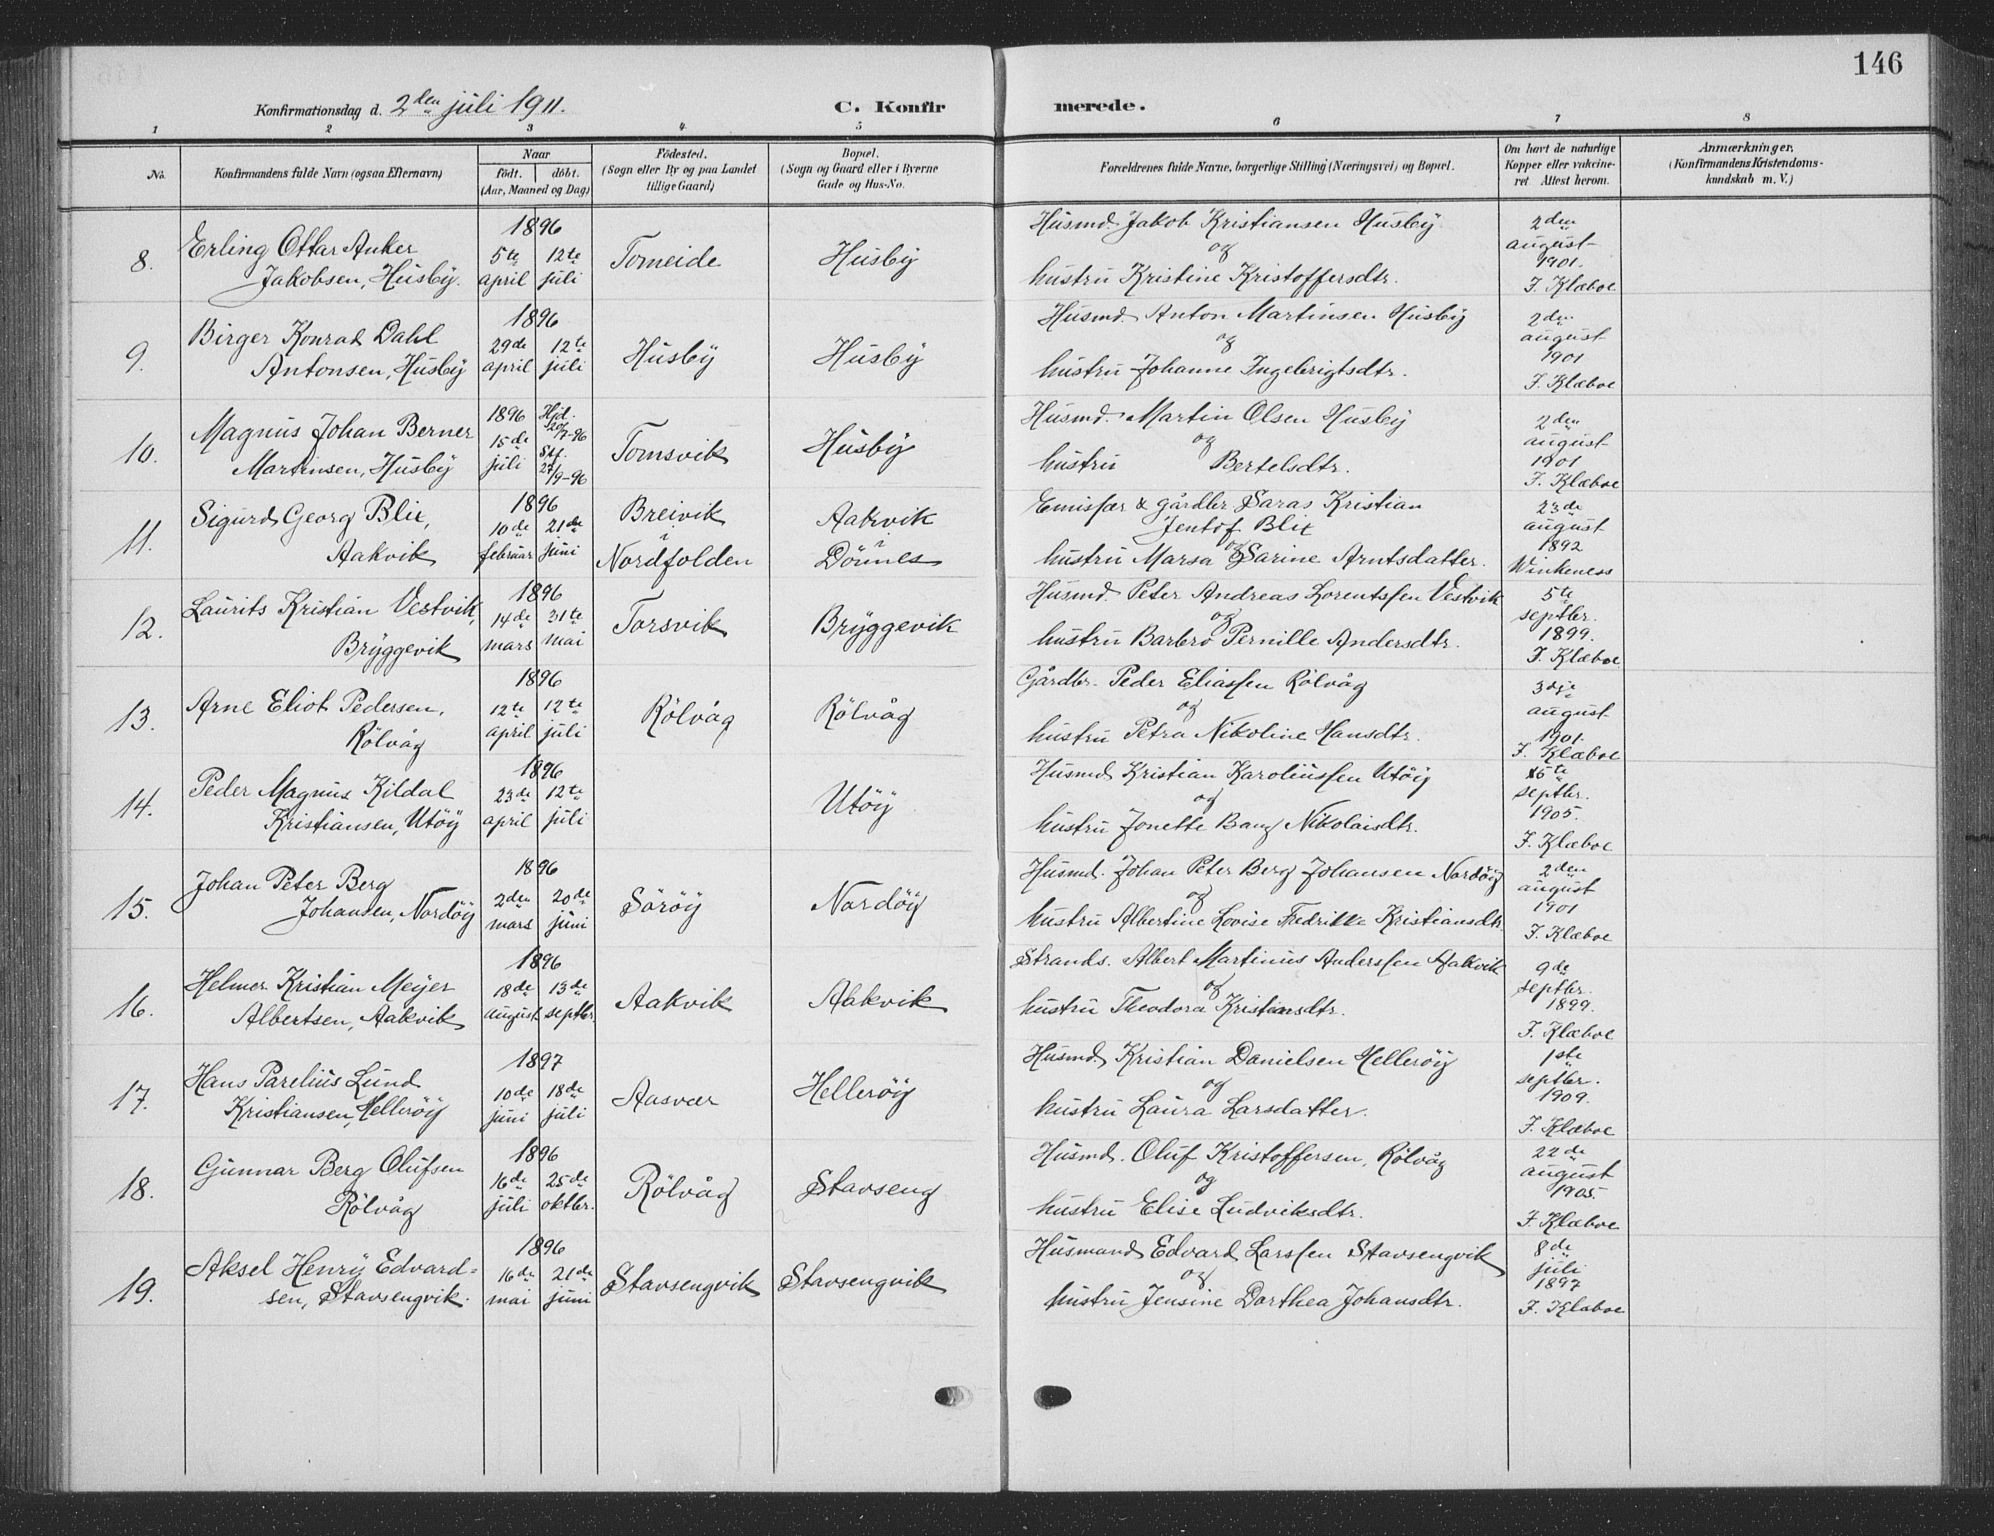 146
Konfirmationsdag d. 2den juli 1911.
C. Konfirmerede.
1 2 3 4 5 6 7 8
No.
Konfirmandens fulde Navn (ogsaa Efternavn)
Naar
født. døbt.
(Aar, Maaned og Dag)
Fødested.
(Sogn eller By og paa Landet
tillige Gaard)
Bopæl.
(Sogn og Gaard eller i Byerne
Gade og Hus-No.
Forældrenes fulde Navne, borgerlige Stilling (Næringsvei) og Bopæl.
Om havt de naturlige
Kopper eller vaccine-
ret Attest herom.
Anmærkninger.
(Konfirmandens Kristendoms-
kundskab m. V.)
8. Erling Ottar Anker
Jakobsen, Husby.
1896
5te april 12te juli
Tomeide
Husby
Husmd. Jakob Kristiansen Husby
og
hustru Kristine Kristoffersdtr.
2den
august
1901.
F. Klæboe
9. Birger Konrad Dahl
Antonsen, Husby
1896
29de april 12te juli
Husby
Husby
Husmd. Anton Martinsen Husby
og
hustru Johanne Ingebrigtsdtr.
2den
august
1901
F. Klæboe
10. Magnus Johan Berner
Martinsen, Husby
1896
15de juli
Hjd. 20/7-96
Stf. 27/9-96
Tomsvik
Husby
Husmd. Martin Olsen Husby
og
hustru Bertelsdtr.
2den
august
1901
F. Klæboe
11. Sigurd Georg Blix,
Aakvik
1896
10de februar 21de juni
Breivik
i
Nordfolden
Aakvik
i
Dönnes
Emisfær & gårdbr Saras Kristian
Jentof Blix
og
hustru Marsa Sarine Arntsdatter.
23de
august
1892
Winkeness
12. Laurits Kristian Vestvik,
Bryggevik
1896
14de mars 31te mai
Torsvik
Bryggevik
Husmd Peter Andreas Lorentsen Vestvik
og
hustru Barbro Pernille Andersdtr.
5te
septbr.
1899.
F. Klæboe
13. Arne Eliot Pedersen,
Rölvåg
1896
12te april 12te juli
Rölvåg
Rölvåg
Gårdbr. Peder Eliassen Rölvåg
og
hustru Petra Nikoline Hansdtr.
3dje
august
1901.
F. Klæboe
14. Peder Magnus Kildal
Kristiansen, Utöy
1896
23de april 12te juli
Utöy
Husmd Kristian Karoliussen Utöy
og
hustru Jonette Bang Nikolaisdtr.
16te
septbr.
1905.
F. Klæboe
15. Johan Peter Berg
Johansen, Nordöy
1896
2den mars 20de juni
Söröy
Nordöy
Husmd. Johan Peter Berg Johansen Nordöy
og
hustru Albertine Lovise Fredrikke Kristiansdtr
2den
august
1901
F. Klæboe
16. Helmer Kristian Meyer
Albertsen, Aakvik
1896
18de august 13de septbr.
Aakvik
Aakvik
Strands. Albert Martinus Anderssen Aakvik
og
hustru Theodora Kristiansdtr.
9de
septbr.
1899.
F. Klæboe
17. Hans Parelius Lund
Kristiansen, Helleröy
1897
10de juni 18de juli
Aasvær
Helleröy
Husmd. Kristian Danielsen Helleröy
og
hustru Laura Larsdatter.
1ste
septbr.
1909.
F. Klæboe
18. Gunnar Berg Olufsen
Rölvåg
1896
16de juli 25de oktbr.
Rölvåg
Stavseng
Husmd. Oluf Kristoffersen, Rölvåg
og
hustru Elise Ludviksdtr.
22de
august
1905
F. Klæboe
19. Aksel Henry Edvard=
sen, Stavsengvik.
1896
16de mai 21de juni
Stavsengvik
Stavsengvik
Husmand Edvard Larssen Stavsengvik
og
hustru Jensine Dorthea Johansdtr.
8de
juli
1897
F. Klæboe